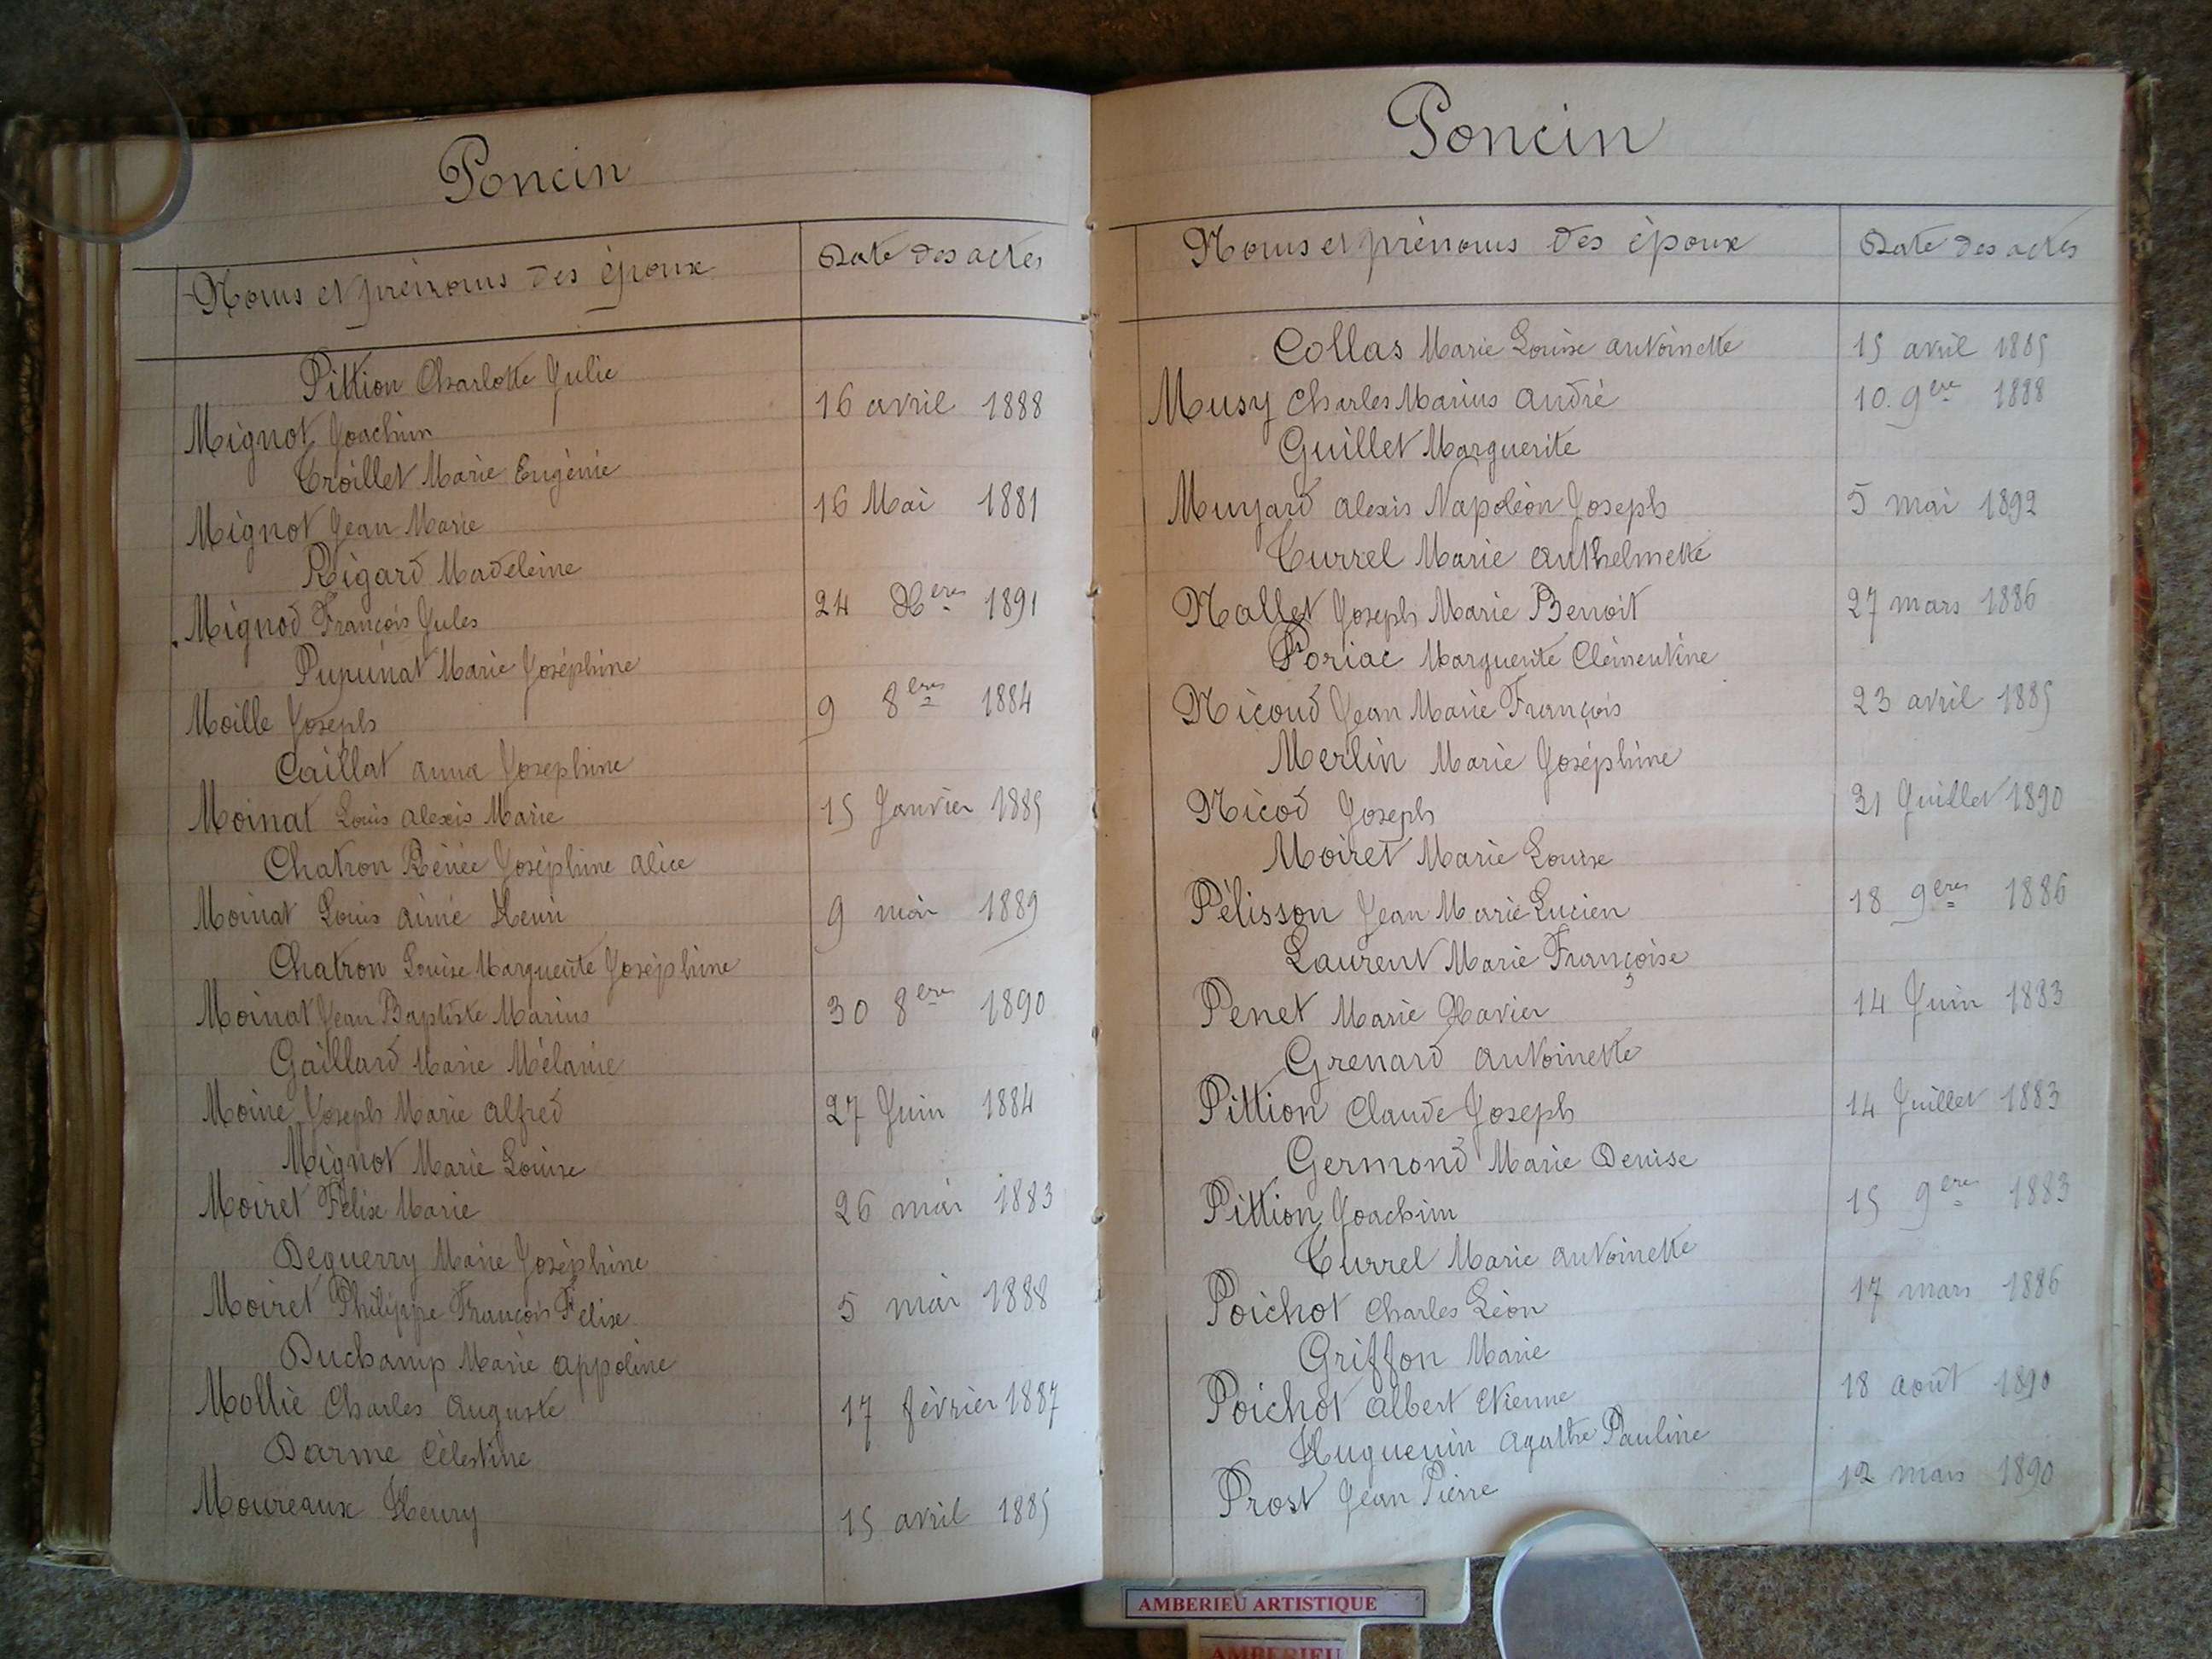 Poncin
Noms et prénoms des époux
Date des actes
Pittion Charlotte Julie
Mignot Joachim 16 avril 1888
Croillet Marie Eugénie
Mignot Jean Marie 16 Mai 1881
Rigard Madeleine
Mignod François Jules 24 Xbre 1891
Pupunat Marie Joséphine
Moille Joseph 9 8bre 1884
Caillat anna Josephine
Moinat Louis alexis Marie 15 Janvier 1885
Chatron Rénée Joséphine alice
Moinat Louis aimé Henri 9 mai 1889
Chatron Louise Marguerite Joséphine
Moinat Jean Baptiste Marius 30 8bre 1890
Gaillard Marie Mélanie
Moine Joseph Marie alfred 27 Juin 1884
Mignot Marie Louise
Moiret Félix Marie 26 mai 1883
Deguerry Marie Joséphine
Moiret Philippe François Félix 5 mai 1888
Duchamp Marie appoline
Mollie Charles auguste 17 février 1887
Darme Célestine
Moureaux Henry 15 avril 1885
Poncin
Noms et prénoms des époux
Date des actes
Collas Marie Louise antoinette 15 avril 1885
Musy Charles Marius andré 10 9bre 1888
Guillet Marguerite
Muyard alexis Napoléon Joseph 5 mai 1892
Turrel Marie anthelmette
Nallet Joseph Marie Benoit 27 mars 1886
Poriac Marguerite Clémentine
Nicoud Jean Marie François 23 avril 1885
Merlin Marie Joséphine
Nicod Joseph 31 Juillet 1890
Moiret Marie Louise
Pélisson Jean Marie Lucien 18 9bre 1886
Laurent Marie Françoise
Penet Marie Xavier 14 Juin 1883
Grenard antoinette
Pittion Claude Joseph 14 Juillet 1883
Germond Marie Denise
Pittion Joachim 15 9bre 1883
Turrel Marie antoinette
Poichot Charles Léon 17 mars 1886
Griffon Marie
Poichot albert Etienne 18 août 1890
Huguenin agathe Pauline
Prost Jean Pierre 12 mars 1890
AMBERIEU ARTISTIQUE
AMBERIEU